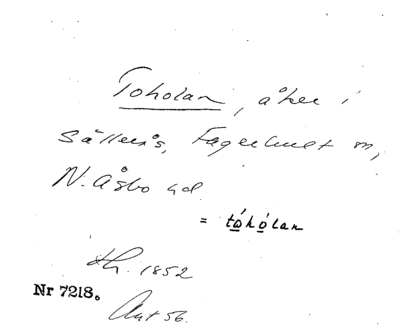 Toholan, åker i
Sålleröås, Fagerhult sn,
N. Åsbo hd.
= tóhólan
Lh. 1852
Nr 7218.
Ant 56.